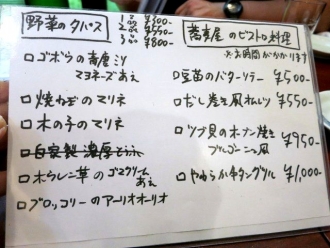 野菜のタパス
1品 ¥300-
2品 ¥500-
3品 ¥800-
□ゴボウの青唐ミソ
マヨネーズあえ
□焼ねぎのマリネ
□木の子のマリネ
□自家製濃厚とうふ
□ホウレン草のゴマクリーム
あえ
□ブロッコリーのアーリオオーリオ
屋のビストロ料理
※お時間がかかります
□豆苗のバターソテー ¥500-
□だし焼き風オムレツ ¥550-
□ツブ貝のオーブン焼き ¥950-
ブルゴーニュ風
□やわらか牛タングリル ¥1,000-